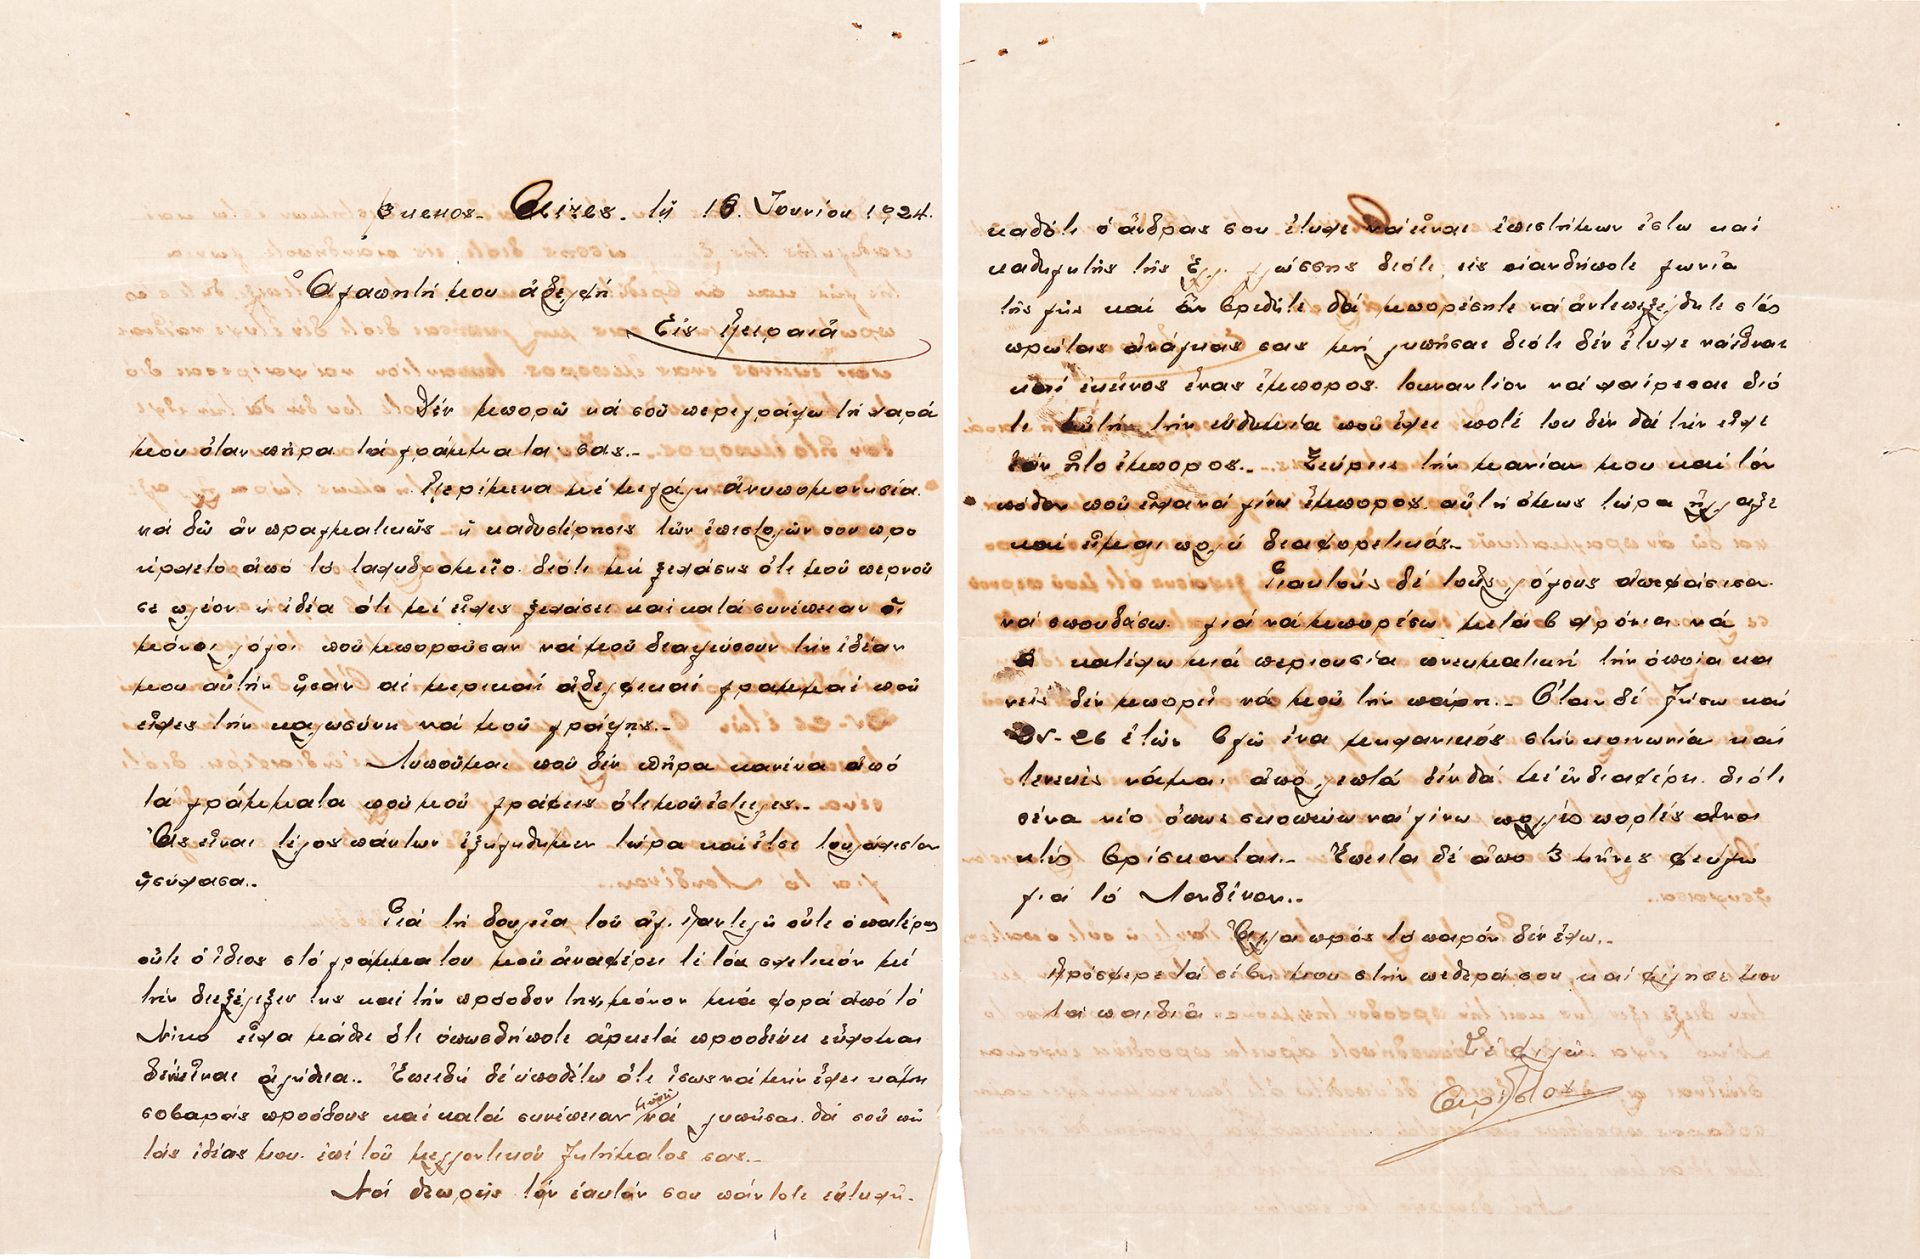 Buenos-Aires. τῇ 16. Ἰουνίου 1924.
Ἀγαπητή μου ἀδελφή
Εἰς Πειραιᾶ
Δέν μπορῶ νά σοῦ περιγράψω τή χαρά
μου ὅταν πῆρα τά γράμματα σας.-
Περίμενα μέ μεγάλη ἀνυπομονησία
νά δῶ ἄν πραγματικῶς ἡ καθυστέρησις τῶν ἐπιστολῶν σου προ
ήρχετο ἀπό τό ταχυδρομεῖο. διότι μή ξεχάσης ὅτι μοῦ περνοῦ
σε πλέον ἡ ἰδέα ὅτι μέ εἶχες ξεχάσει καί κατά συνέπειαν οἱ
μόνοι λόγοι ποῦ μποροῦσαν νά μοῦ διαψεύσουν τήν ἰδέαν
μου αὐτήν ἦσαν αἱ μερικαί ἀδελφικαί γραμμαί ποῦ
εἶχες τήν καλωσύνη νά μοῦ γράψης.-
Λυποῦμαι ποῦ δέν πῆρα κανένα ἀπό
τά γράμματα ποῦ μοῦ γράφεις ὅτι μοῦ ἔστειλες.-
Ἄς εἶναι τέλος πάντων ἐξηγήθημεν τώρα καί ἔτσι τουλάχιστον
ἡσύχασα..
Γιά τή δουλεῖα τοῦ ἀγ. Παντελῆ οὔτε ὁ πατέρας
οὔτε ὁ ἴδιος στό γράμμα του μοῦ ἀναφέρει τί τό σχετικόν μέ
τήν διεξέλιξιν της καί τήν πρόοδον της, μόνον μιά φορά ἀπό τό
Νῖκο εἶχα μάθει ὅτι ὁπωσδήποτε ἀρκετά προοδεύει εὔχομαι
νά εἶναι ἀλήθεια.. Ἐπειδή δέ ὑποθέτω ὅτι ἴσως νά μήν ἔχει κάμη
σοβαράς προόδους καί κατά συνέπειαν νά λυπῆσαι θά σοῦ πῶ
τάς ἰδέας μου ἐπί τοῦ μελλοντικοῦ ζητήματος σας.-
Νά θεωρεῖς τόν ἑαυτόν σου πάντοτε εὐτυχῆ.
καθότι ὁ ἄνδρας σου ἔτυχε νά εἶναι ἐπιστήμων ἔστω καί
καθηγητής τῆς Ἑλλ. γλώσσης διότι εἰς οἱανδήποτε γωνία
τῆς γῆς καί ἄν βρεθῆτε θά μπορέσητε νά ἀντεπεξέλθητε στάς
πρώτας ἀνάγκας σας μή λυπῆσαι διότι δέν ἔτυχε νά εἶναι
καί ἐκεῖνος ἕνας ἔμπορος. τουναντίον νά χαίρεσαι διό
τι αὐτήν τήν εὐθυμία ποῦ ἔχει ποτέ του δέν θά τήν εἶχε
ἐάν ἦτο ἔμπορος.- Ξεύρεις τήν μανίαν μου καί τόν
πόθον ποῦ εἶχα νά γίνω ἔμπορος. αὐτή ὅμως τώρα ἤλλαξε
καί εἶμαι πολύ διαφορετικός.-
Γιαυτούς δέ τούς λόγους ἀπεφάσισα
νά σπουδάσω. γιά νά μπορέσω μετά 6 χρόνια νά
κατέχω μιά περιουσία πνευματική τήν ὁποία κα
νείς δέν μπορεῖ νά μοῦ τήν πάρη.- Ὅταν δέ ζήσω καί
ἐτῶν βγῶ ἕνα μηχανικός στήν κοινωνία καί
νἆμαι ἀπό λεπτά δέν θά μέ ἐνδιαφέρη. διότι
σένα νέο ὅπως σκοπεύω νά γίνω πολλές πορτές ἀνοι
κτές βρίσκονται.- Ἔπειτα δέ ἀπο 3 μῆνες φεύγω
γιά τό Λονδίνον..
Ἄλλα πρός τό παρόν δέν ἔχω.-
Πρόσφερε τά σέβη μου στήν πεθερά σου καί φίλησέ μου
τά παιδιά
Σέ φιλῶ